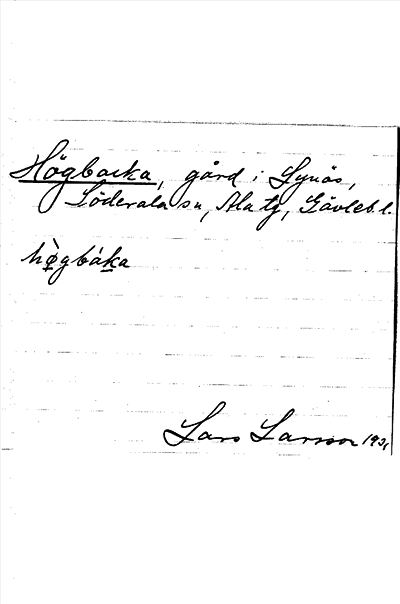 Högbacka, gård i Lynäs,
Söderala sn, Ala tg, Gävleb. l.
hø̀gbáka
Lars Larsson 1931